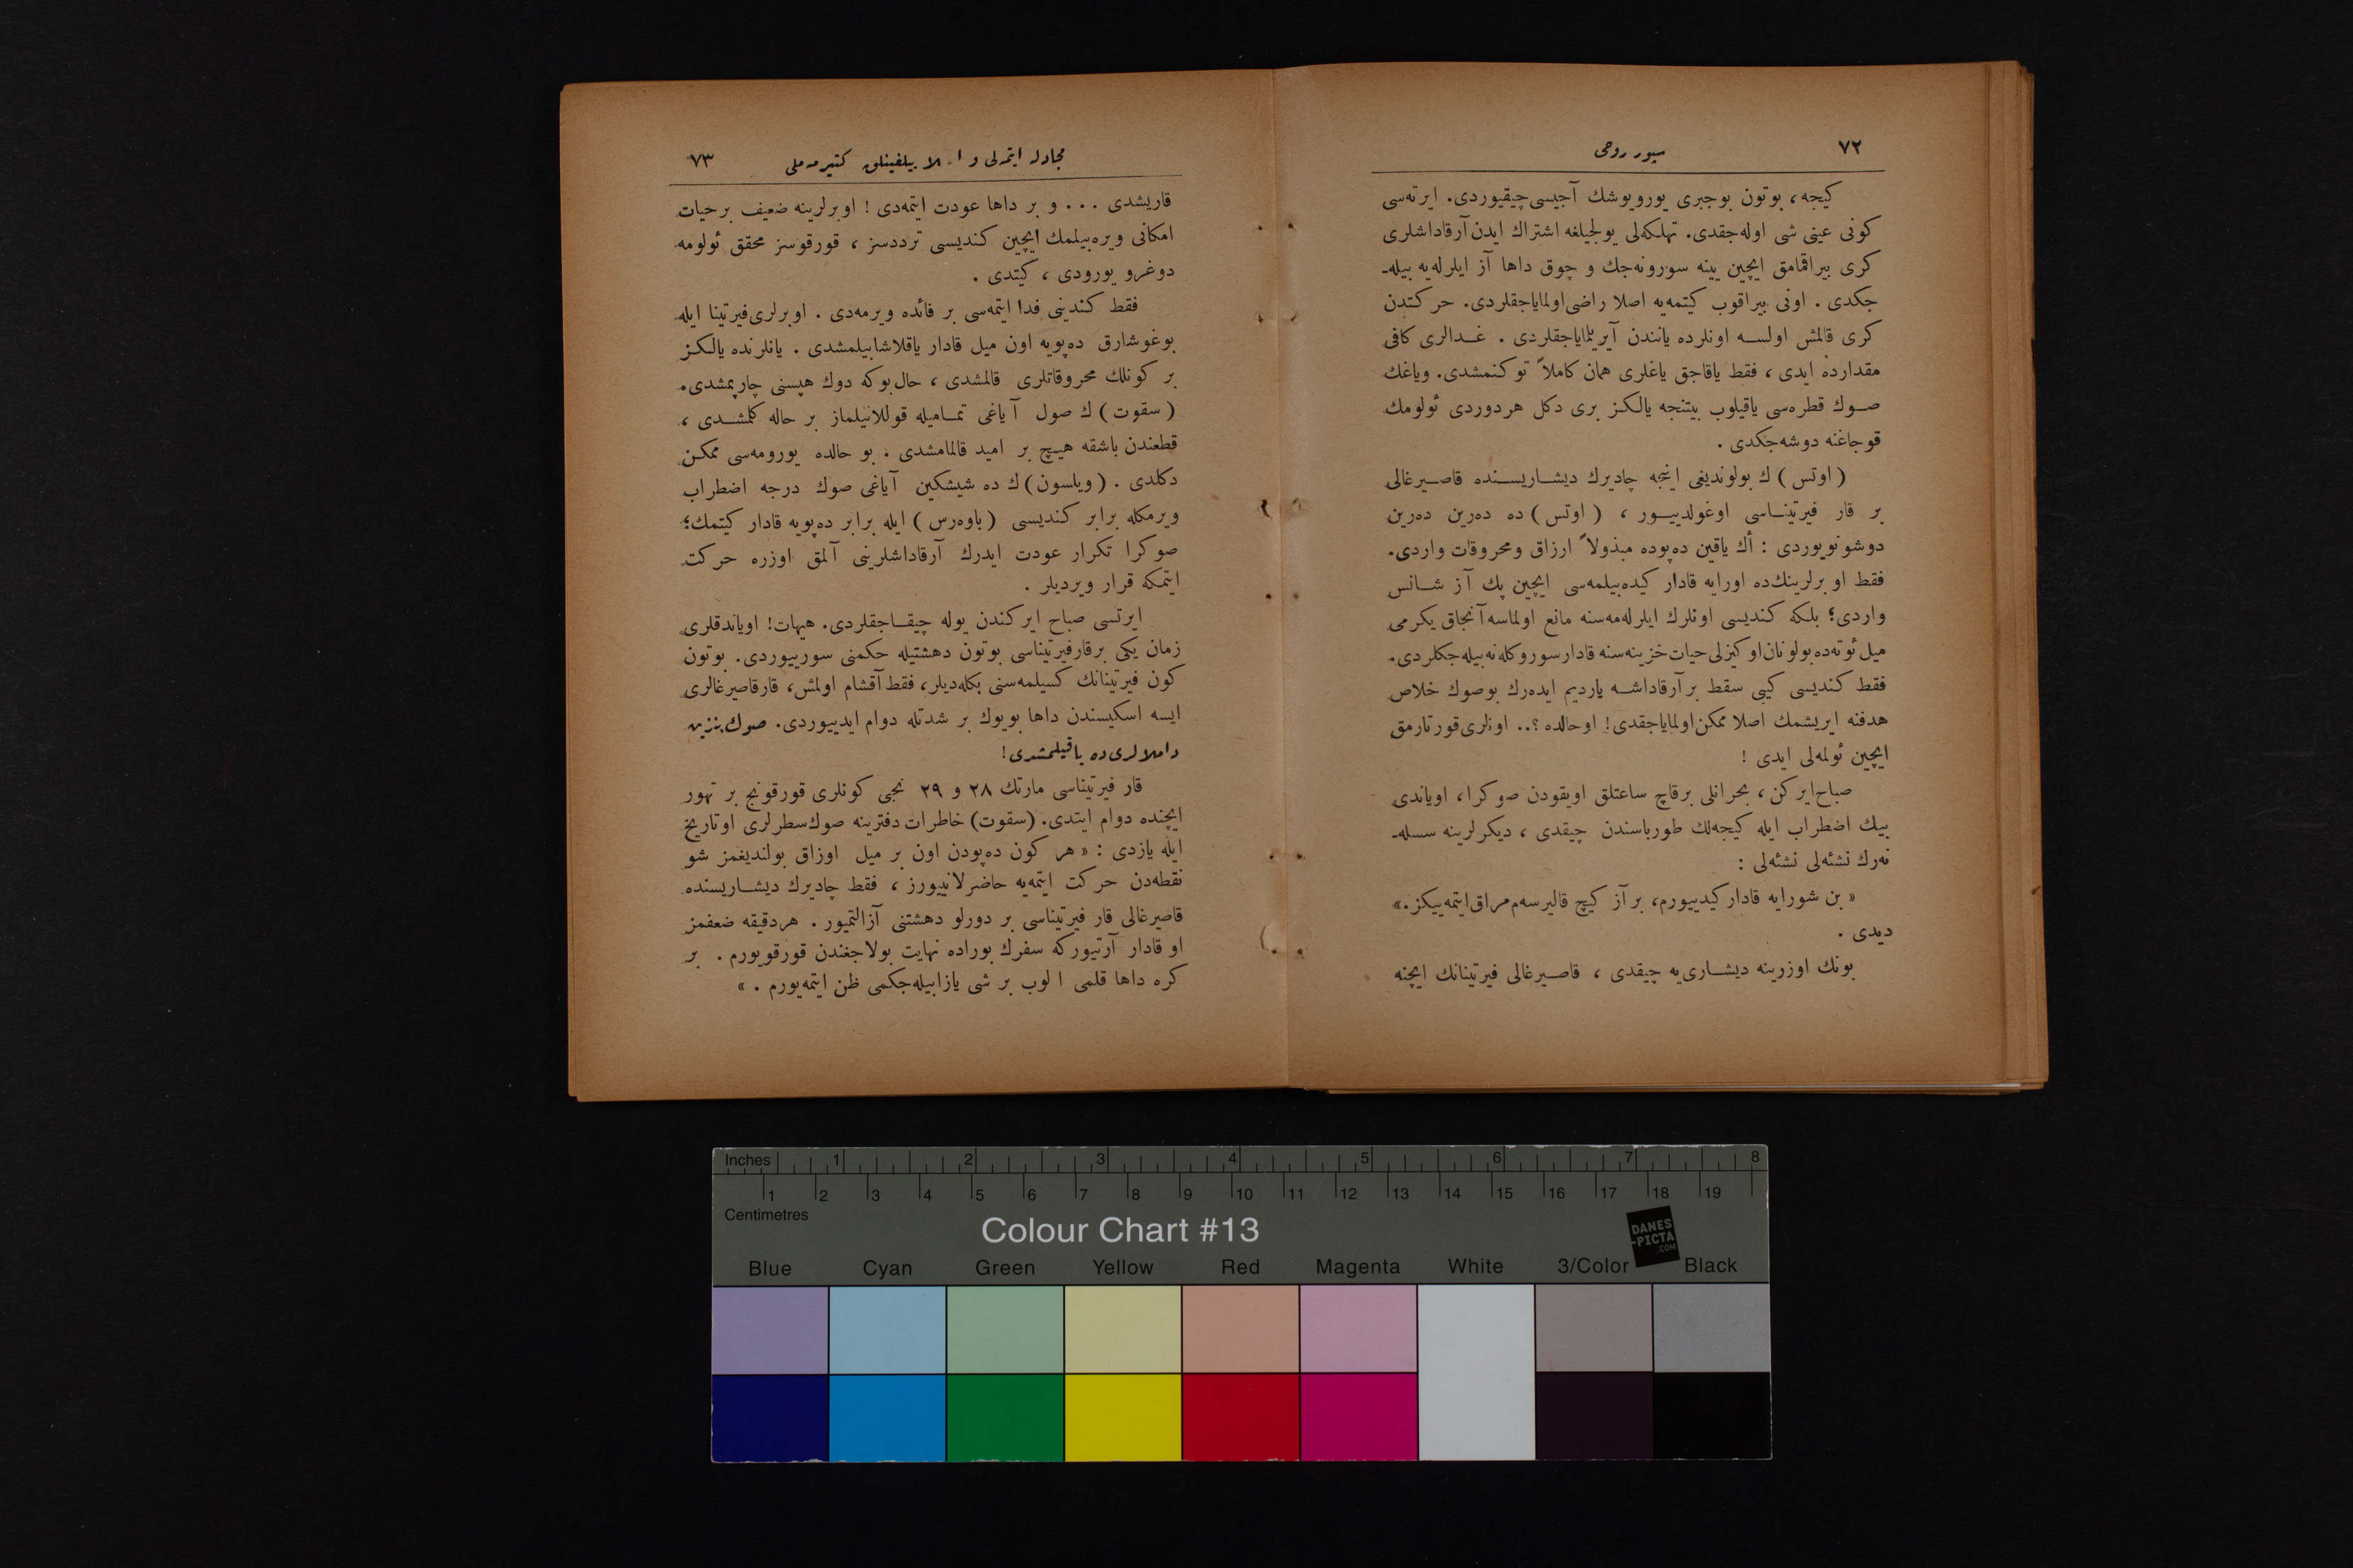 ٧٢
سپور روحی
كیجه، بوتون بوجبری یورویوشك آجیسی چیقیوردی. ایرته‌سی
كونی عینی شی اوله‌جقدی. تهلكه‌لی یولجیلغه اشتراك ایدن آرقاداشلری
كری بیراقمامق ایچین یینه سورونه‌جك و چوق داها آز ایلرله‌یه بیله-
جكدی . اونی بیراقوب كیتمه‌یه اصلا راضی اولمایاجقلردی. حركتدن
كری قالمش اولسه اونلرده یانندن آیریلمایاجقلردی . غدالری كافی
مقدارده ایدی ، فقط یاقاجق یاغلری همان كاملاً توكنمشدی. ویاغك
صوك قطره‌سی یاقیلوب بیتنجه یالكز بری دكل هردوردی ئولومك
قوجاغنه دوشه‌جكدی .
( اوتس ) ك بولوندیغی اینجه چادیرك دیشاریسنده قاصیرغالی
بر قار فیرتیناسی اوغولدییور ، ( اوتس ) ده ده‌رین ده‌رین
دوشونویوردی : أك یاقین ده‌پوده مبذولاً ارزاق ومحروقات واردی.
فقط او برلرینك‌ده اورایه قادار كیده‌بیلمه‌سی ایچین پك آز شانس
واردی؛ بلكه كندیسی اونلرك ایلرله‌مه‌سنه مانع اولماسه آنجاق یكرمی
میل ئوته‌ده بولونان او كیزلی حیات خزینه‌سنه قادار سوروكله‌نه‌بیله‌جكلردی.
فقط كندیسی كیبی سقط بر آرقاداشه یاردیم ایده‌رك بوصوك خلاص
هدفنه ایریشمك اصلا ممكن اولمایاجقدی! اوحالده ؟.. اونلری قورتارمق
ایچین ئولمه‌لی ایدی !
صباح ایركن ، بحرانلی برقاچ ساعتلق اویقودن صوكرا، اویاندی
بیك اضطراب ایله كیجه‌لك طورباسندن چیقدی ، دیكرلرینه سسله-
نه‌رك نشئه‌لی نشئه‌لی :
« بن شورایه قادار كیدییورم، بر آز كیچ قالیرسه‌م مراق ایتمه‌ییكز.»
دیدی .
بونك اوزرینه دیشاری‌یه چیقدی ، قاصیرغالی فیرتینانك ایچنه
مجادله ایتمه‌لی و اصلا ییلغینلق كتیرمه‌ملی
٧٣
قاریشدی ... و بر داها عودت ایتمه‌دی ! اوبرلرینه ضعیف برحیات
امكانی ویره‌بیلمك ایچین كندیسی ترددسز ، قورقوسز محقق ئولومه
دوغرو یورودی ، كیتدی .
فقط كندینی فدا ایتمه‌سی بر فائده ویرمه‌دی . اوبرلری فیرتینا ایله
بوغوشارق ده‌پویه اون میل قادار یاقلاشابیلمشدی . یانلرنده یالكز
بر كونلك محروقاتلری قالمشدی ، حال بوكه دوك هپسنی چارپمشدی.
( سقوت ) ك صول آیاغی تمامیله قوللانیلماز بر حاله كلمشدی ،
قطعندن باشقه هیچ بر امید قالمامشدی . بو حالده یورومه‌سی ممكن
دكلدی . ( ویلسون ) ك ده شیشكین آیاغی صوك درجه اضطراب
ویرمكله برابر كندیسی ( باوه‌رس ) ایله برابر ده‌پویه قادار كیتمك؛
صوكرا تكرار عودت ایدرك آرقاداشلرینی آلمق اوزره حركت
ایتمكه قرار ویردیلر .
ایرتسی صباح ایركندن یوله چیقاجقلردی. هیهات! اویاندقلری
زمان یكی برقارفیرتیناسی بوتون دهشتیله حكمنی سورییوردی. بوتون
كون فیرتینانك كسیلمه‌سنی بكله‌دیلر، فقط آقشام اولمش، قارقاصیرغالری
ایسه اسكیسندن داها بویوك بر شدتله دوام ایدییوردی. صوك بنزین
داملالری ده یاقیلمشدی!
قار فیرتیناسی مارتك ٢٨ و ٢٩ نجی كونلری قورقونج بر تهور
ایچنده دوام ایتدی. (سقوت) خاطرات دفترینه صوك سطرلری اوتاریخ
ایله یازدی : « هر كون ده‌پودن اون بر میل اوزاق بولندیغمز شو
نقطه‌دن حركت ایتمه‌یه حاضرلانییورز ، فقط چادیرك دیشاریسنده
قاصیرغالی قار فیرتیناسی بر دورلو دهشتنی آزالتمیور . هردقیقه ضعفمز
او قادار آرتیوركه سفرك بوراده نهایت بولاجغندن قورقویورم . بر
كره داها قلمی الوب بر شی یازابیله‌جكمی ظن ایتمه‌یورم . »
Inches 1 2 3 4 5 6 7 8
1 2 3 4 5 6 7 8 9 10 11 12 13 14 15 16 17 18 19
Centimetres
Colour Chart #13
DANES
-PICTA
.COM
Blue Cyan Green Yellow Red Magenta White 3/Color Black